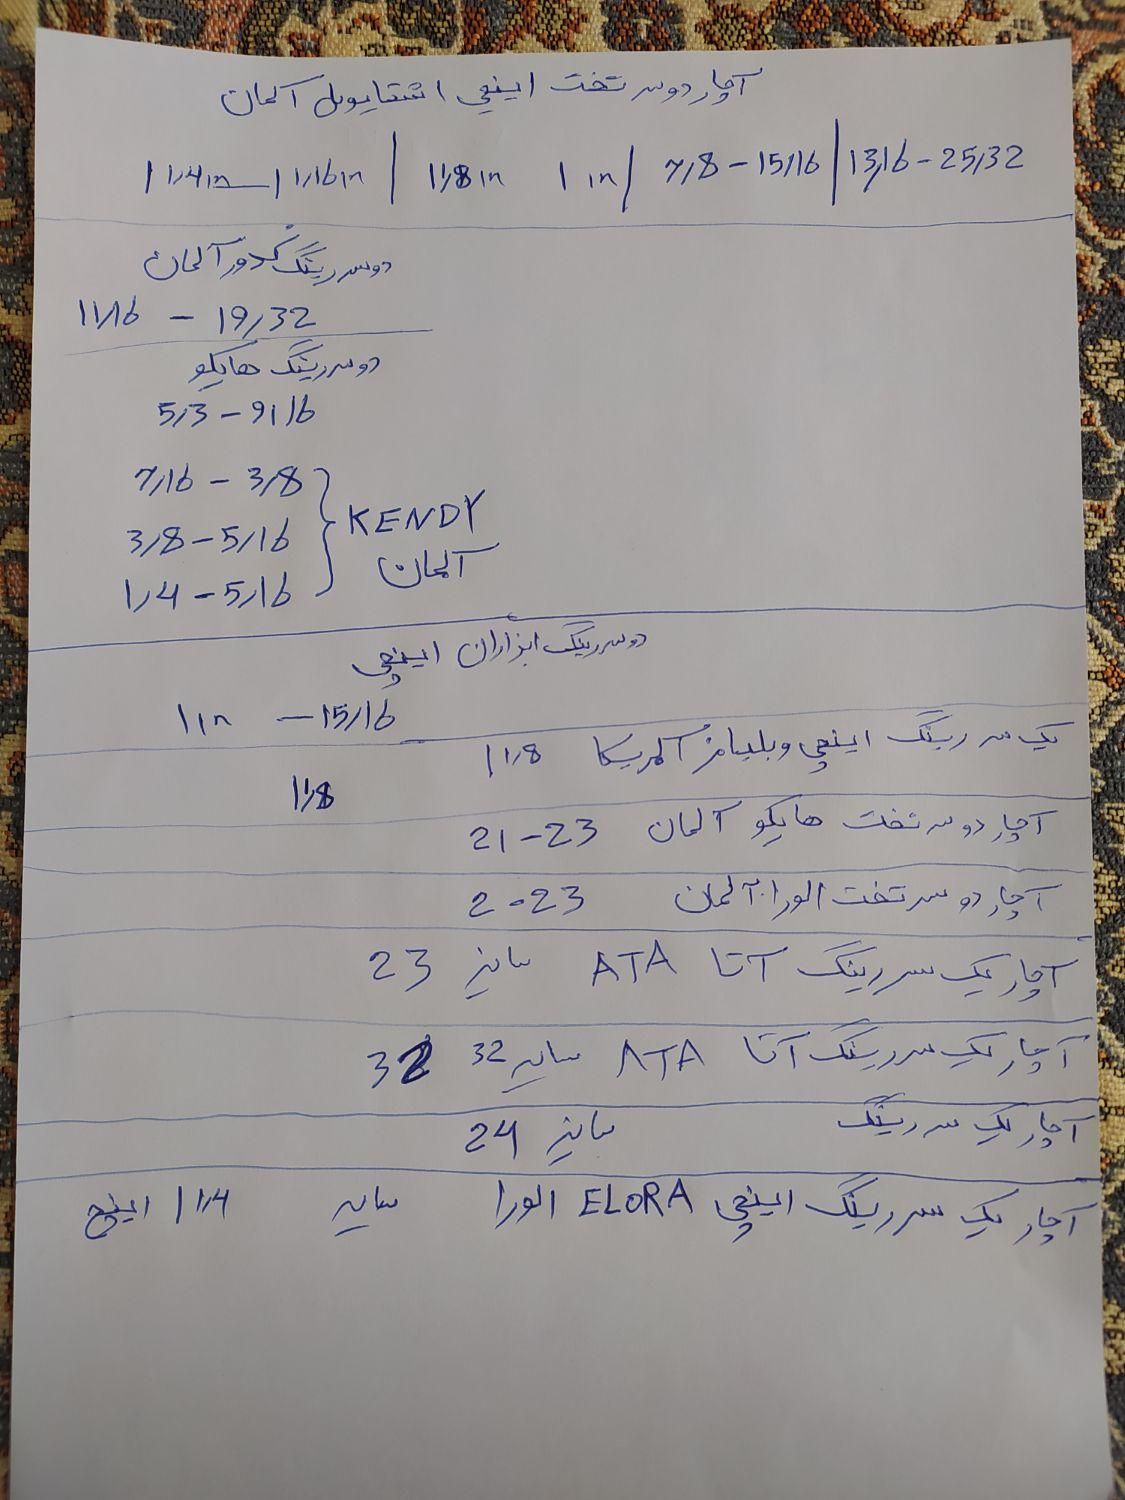 آچار دوسر تخت اینچی اشتایویل آلمان
1 1/4 in — 1 1/16 in | 1 1/8 in 1 in | 7/8 - 15/16 | 13/16 - 25/32
دوسر رینگ گدور آلمان
11/16 - 19/32
دوسر رینگ هایکو
5/3 - 9/16
7/16 - 3/8
3/8 - 5/16
1/4 - 5/16
KENDY
آلمان
دوسر رینگ ابزاران اینچی
1 in - 15/16
یک سر رینگ اینچی ویلیامز آمریکا 1 1/8
1 1/8
آچار دوسر تخت هایکو آلمان 21-23
آچار دوسر تخت الورا آلمان 2-23
آچار یک سر رینگ آتا ATA سایز 23
آچار یک سر رینگ آتا ATA سایز 32 32
آچار یک سر رینگ سایز 24
آچار یک سر رینگ اینچی ELORA الورا سایز 1 1/4 اینچ